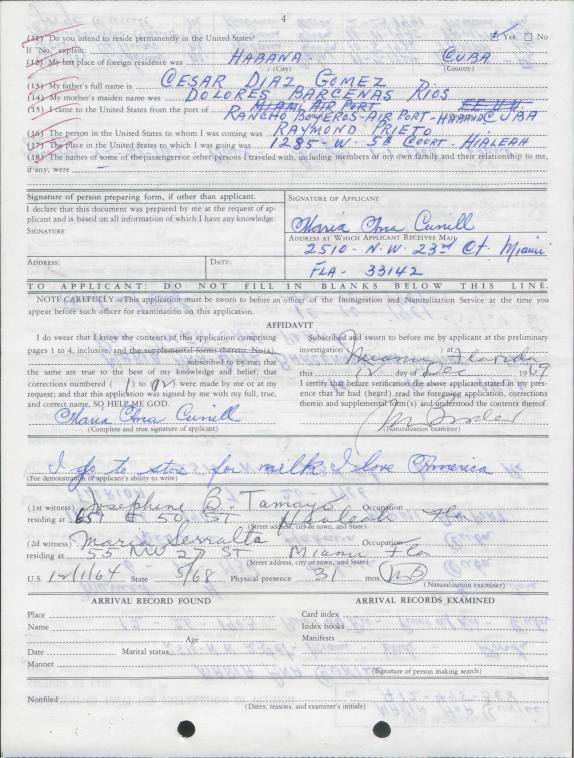 4
(11) Do you intend to reside permanently in the United States? Yes No
If "No," explain:
(12) My last place of foreign residence was HABANA - CUBA
(City) (Country)
(13) My father's full name is CESAR DIAZ GOMEZ
(14) My mother's maiden name was DOLORES BARCENAS RIOS
(15) I came to the United States from the port of MIAMI AIR PORT
RANCHO BOYEROS-AIR PORT-HABANA CUBA
(16) The person in the United States to whom I was coming was RAYMOND PRIETO
(17) The place in the United States to which I was going was 1285-W. 5th COURT - HIALEAH
(18) The names of some of the passengers or other persons I traveled with, including members of my own family and their relationship to me,
if any, were
Signature of person preparing form, if other than applicant.
I declare that this document was prepared by me at the request of applicant and is based on all information of which I have any knowledge.
SIGNATURE
ADDRESS: DATE:
SIGNATURE OF APPLICANT
Maria Ana Cunill
ADDRESS AT WHICH APPLICANT RECEIVES MAIL
2510 - N.W. 23rd Ct. Miami
FLA - 33142
TO APPLICANT: DO NOT FILL IN BLANKS BELOW THIS LINE.
NOTE CAREFULLY.—This application must be sworn to before an officer of the Immigration and Naturalization Service at the time you
appear before such officer for examination on this application.
AFFIDAVIT
I do swear that I know the contents of this application comprising
pages 1 to 4, inclusive, and the supplemental forms thereto, No(s).
subscribed to by me; that
the same are true to the best of my knowledge and belief; that
corrections numbered ( 1 to 12 ) were made by me or at my
request; and that this application was signed by me with my full, true,
and correct name, SO HELP ME GOD.
Maria Ana Cunill
(Complete and true signature of applicant)
Subscribed and sworn to before me by applicant at the preliminary
investigation ( ) at Miami Florida
this 12 day of Dec 1969
I certify that before verification the above applicant stated in my presence
that he had (heard) read the foregoing application, corrections
therein and supplemental form(s) and understood the contents thereof.
(Naturalization examiner)
I go to stor for milk. I love America
(For demonstration of applicant's ability to write)
(1st witness) Josephine B. Tamayo Occupation
residing at 657 E 50 ST Hialeah Fla
(Street address, city or town, and State)
(2d witness) Maria Serralta Occupation
residing at 55 NW 27 ST Miami Fla
(Street address, city or town, and State)
U.S. 12/1/64 State 5/68 Physical presence 31 mos. MB
(Naturalization examiner)
ARRIVAL RECORD FOUND
Place
Name
Age
Date Marital status
Manner
ARRIVAL RECORDS EXAMINED
Card index
Index books
Manifests
(Signature of person making search)
Nonfiled
(Dates, reasons, and examiner's initials)